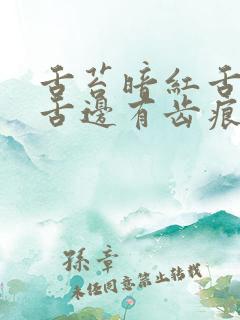 舌苔暗红舌
舌邊有齿痕
孫章
未经同意禁止转载